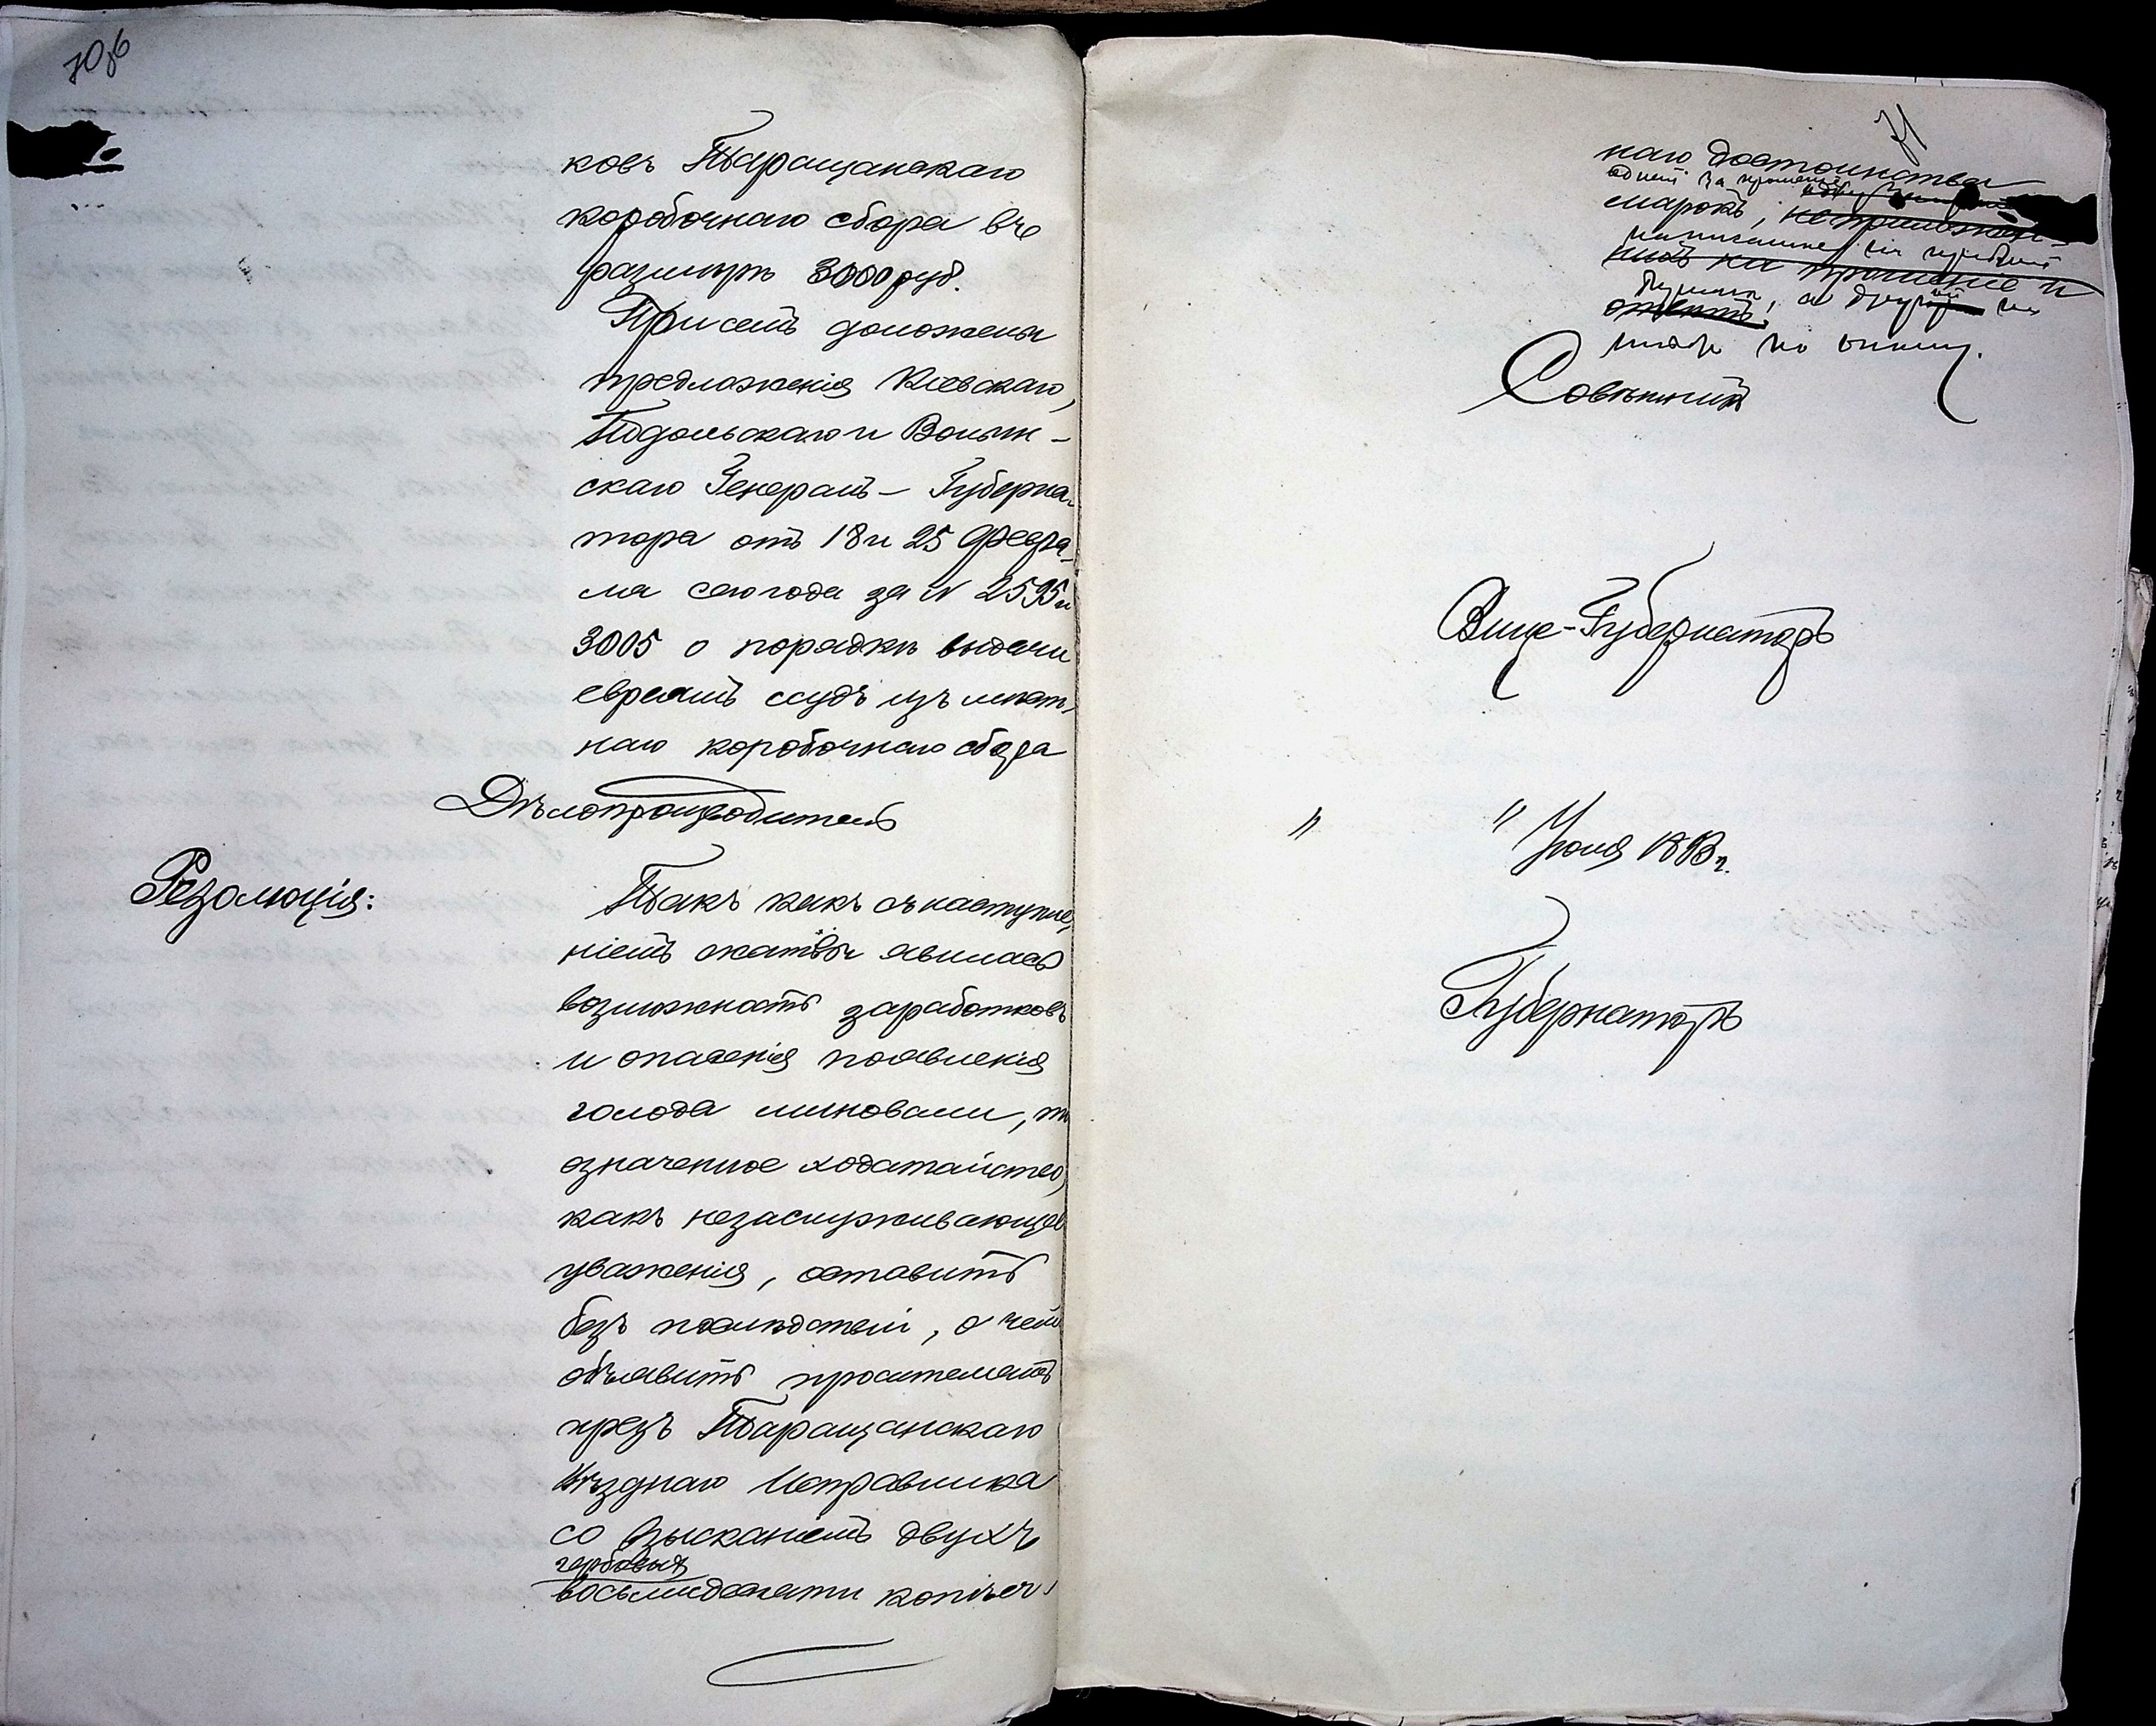 70 об
ковъ Таращанскаго
коробочнаго сбора въ
размѣрѣ 3000 руб.
При семъ доложены
предложенія Кіевскаго,
Подольскаго и Волын-
скаго Генералъ-Губерна-
тора отъ 18 и 25 Февра-
ля сего года за N 2595 и
3005 о порядкѣ выдачи
евреямъ ссудъ изъ мѣст-
наго коробочнаго сбора
Дѣлопроизводитель
Резолюція:
Такъ какъ съ наступле-
ніемъ жатвы явилась
возможность заработковъ
и опасенія появленія
голода миновали, то
означенное ходатайство,
какъ незаслуживающее
уваженія, оставить
безъ послѣдствій, о чемъ
объявить просителямъ
чрезъ Таращанскаго
Уѣзднаго Исправника
со взысканіемъ двухъ
гербовыхъ
восьмидесяти копѣеч-
71
наго достоинства
одной за прошеніе
марокъ, неприложен-
ныхъ на прошеніе и
бумаги, а другой на
отвѣтъ.
Совѣтникъ
Вице-Губернаторъ
" " Іюня 1893 г.
Губернаторъ